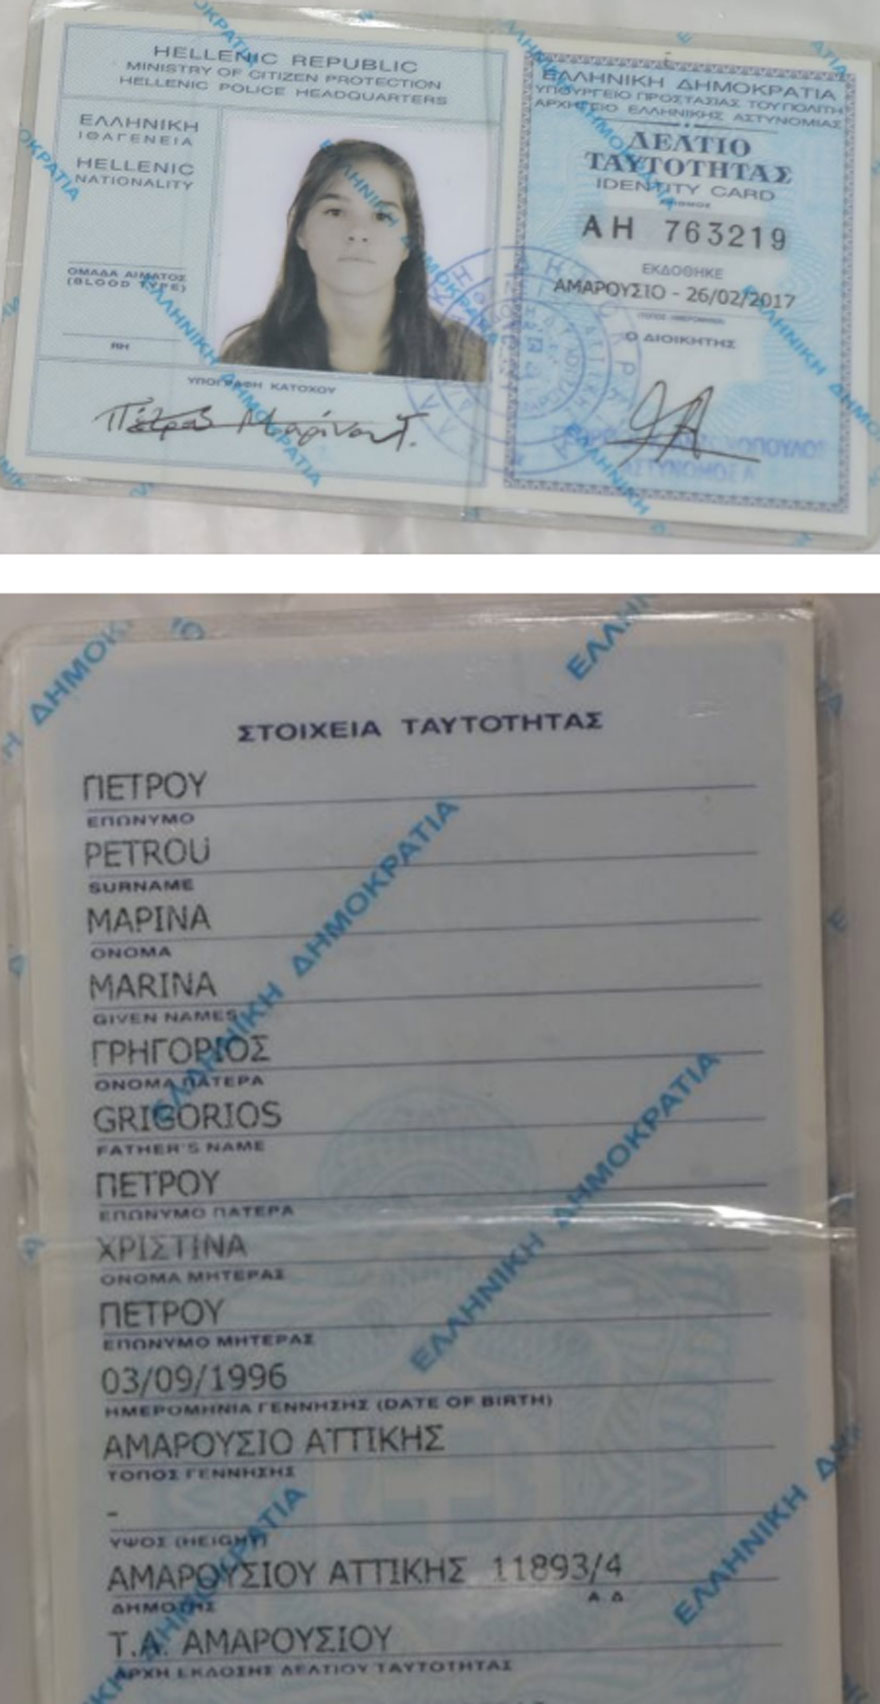 HELLENIC REPUBLIC
MINISTRY OF CITIZEN PROTECTION
HELLENIC POLICE HEADQUARTERS
ΕΛΛΗΝΙΚΗ
ΙΘΑΓΕΝΕΙΑ
HELLENIC
NATIONALITY
ΟΜΑΔΑ ΑΙΜΑΤΟΣ
(BLOOD TYPE)
RH
ΥΠΟΓΡΑΦΗ ΚΑΤΟΧΟΥ
ΕΛΛΗΝΙΚΗ ΔΗΜΟΚΡΑΤΙΑ
ΥΠΟΥΡΓΕΙΟ ΠΡΟΣΤΑΣΙΑΣ ΤΟΥ ΠΟΛΙΤΗ
ΑΡΧΗΓΕΙΟ ΕΛΛΗΝΙΚΗΣ ΑΣΤΥΝΟΜΙΑΣ
ΔΕΛΤΙΟ
ΤΑΥΤΟΤΗΤΑΣ
IDENTITY CARD
ΑΡΙΘΜΟΣ
ΑΗ 763219
ΕΚΔΟΘΗΚΕ
ΑΜΑΡΟΥΣΙΟ - 26/02/2017
Ο ΔΙΟΙΚΗΤΗΣ
ΣΤΟΙΧΕΙΑ ΤΑΥΤΟΤΗΤΑΣ
ΠΕΤΡΟΥ
ΕΠΩΝΥΜΟ
PETROU
SURNAME
ΜΑΡΙΝΑ
ΟΝΟΜΑ
MARINA
GIVEN NAMES
ΓΡΗΓΟΡΙΟΣ
ΟΝΟΜΑ ΠΑΤΕΡΑ
GRIGORIOS
FATHER'S NAME
ΠΕΤΡΟΥ
ΕΠΩΝΥΜΟ ΠΑΤΕΡΑ
ΧΡΙΣΤΙΝΑ
ΟΝΟΜΑ ΜΗΤΕΡΑΣ
ΠΕΤΡΟΥ
ΕΠΩΝΥΜΟ ΜΗΤΕΡΑΣ
03/09/1996
ΗΜΕΡΟΜΗΝΙΑ ΓΕΝΝΗΣΗΣ (DATE OF BIRTH)
ΑΜΑΡΟΥΣΙΟ ΑΤΤΙΚΗΣ
ΤΟΠΟΣ ΓΕΝΝΗΣΗΣ
-
ΥΨΟΣ (HEIGHT)
ΑΜΑΡΟΥΣΙΟΥ ΑΤΤΙΚΗΣ 11893/4
ΔΗΜΟΤΗΣ Α.Δ
Τ.Α. ΑΜΑΡΟΥΣΙΟΥ
ΑΡΧΗ ΕΚΔΟΣΗΣ ΔΕΛΤΙΟΥ ΤΑΥΤΟΤΗΤΑΣ
ΕΛΛΗΝΙΚΗ ΔΗΜΟΚΡΑΤΙΑ
ΕΛΛΗΝΙΚΗ ΔΗΜΟΚΡΑΤΙΑ